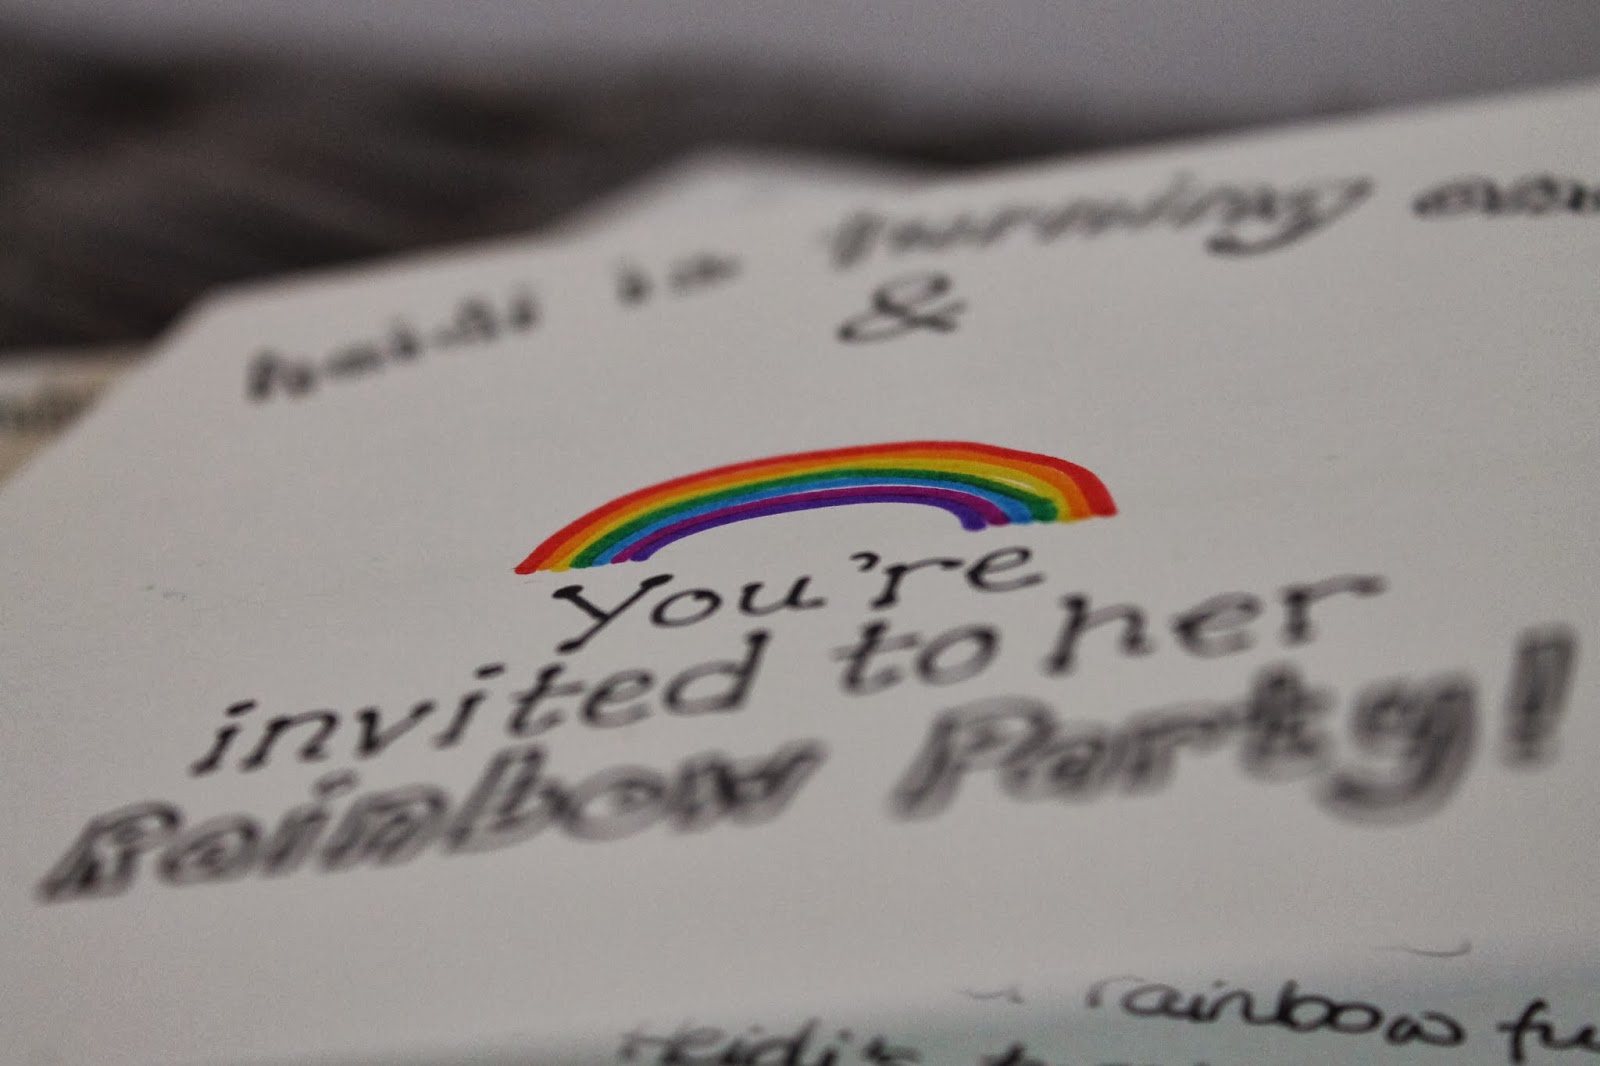 Heidi is turning one
&
you're
invited to her
Rainbow Party!
rainbow fu
Heidi's